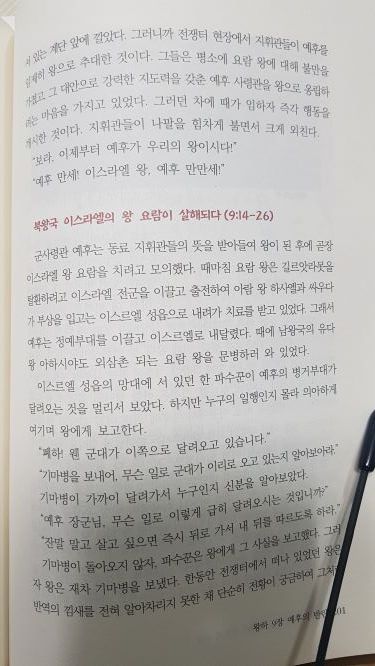 서 있는 계단 앞에 깔았다. 그러니까 전쟁터 현장에서 지휘관들이 예후를
왕으로 추대한 것이다. 그들은 평소에 요람 왕에 대해 불만을
가졌고, 그 대안으로 강력한 지도력을 갖춘 예후 사령관을 왕으로 옹립하
려는 마음을 가지고 있었다. 그러던 차에 때가 임하자 즉각 행동을
개시한 것이다. 지휘관들이 나팔을 힘차게 불면서 크게 외친다.
"보라, 이제부터 예후가 우리의 왕이시다!"
"예후 만세! 이스라엘 왕, 예후 만만세!"
북왕국 이스라엘의 왕 요람이 살해되다 (9:14-26)
군사령관 예후는 동료 지휘관들의 뜻을 받아들여 왕이 된 후에 곧장
이스라엘 왕 요람을 치려고 모의했다. 때마침 요람 왕은 길르앗라못을
탈환하려고 이스라엘 전군을 이끌고 출전하여 아람 왕 하사엘과 싸우다
가 부상을 입고는 이스르엘 성읍으로 내려가 치료를 받고 있었다. 그래서
예후는 정예부대를 이끌고 이스르엘로 내달렸다. 때에 남왕국의 유다
왕 아하시야도 외삼촌 되는 요람 왕을 문병하러 와 있었다.
이스르엘 성읍의 망대에 서 있던 한 파수꾼이 예후의 병거부대가
달려오는 것을 멀리서 보았다. 하지만 누구의 일행인지 몰라 의아하게
여기며 왕에게 보고한다.
"폐하! 웬 군대가 이쪽으로 달려오고 있습니다."
"기마병을 보내어, 무슨 일로 군대가 이리로 오고 있는지 알아보아라."
기마병이 가까이 달려가서 누구인지 신분을 알아보았다.
"예후 장군님, 무슨 일로 이렇게 급히 달려오시는 것입니까?"
"잔말 말고 살고 싶으면 즉시 뒤로 가서 내 뒤를 따르도록 하라."
기마병이 돌아오지 않자, 파수꾼은 왕에게 그 사실을 보고했다. 그러
자 왕은 재차 기마병을 보냈다. 한동안 전쟁터에서 떠나 있었던 왕은
반역의 낌새를 전혀 알아차리지 못한 채 단순히 전황이 궁금하여
왕하 9장 예후의 반란